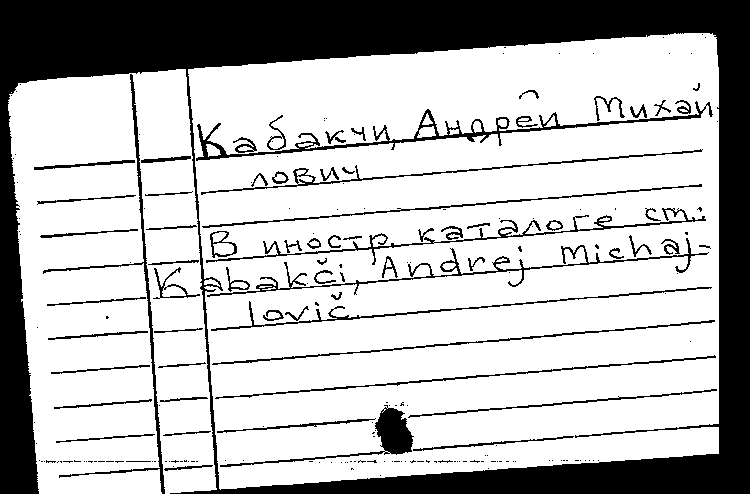 Кабакчи, Андрей Михай
лович
В иностр. каталоге см.:
Kabakči, Andrej Michaj-
lovič.